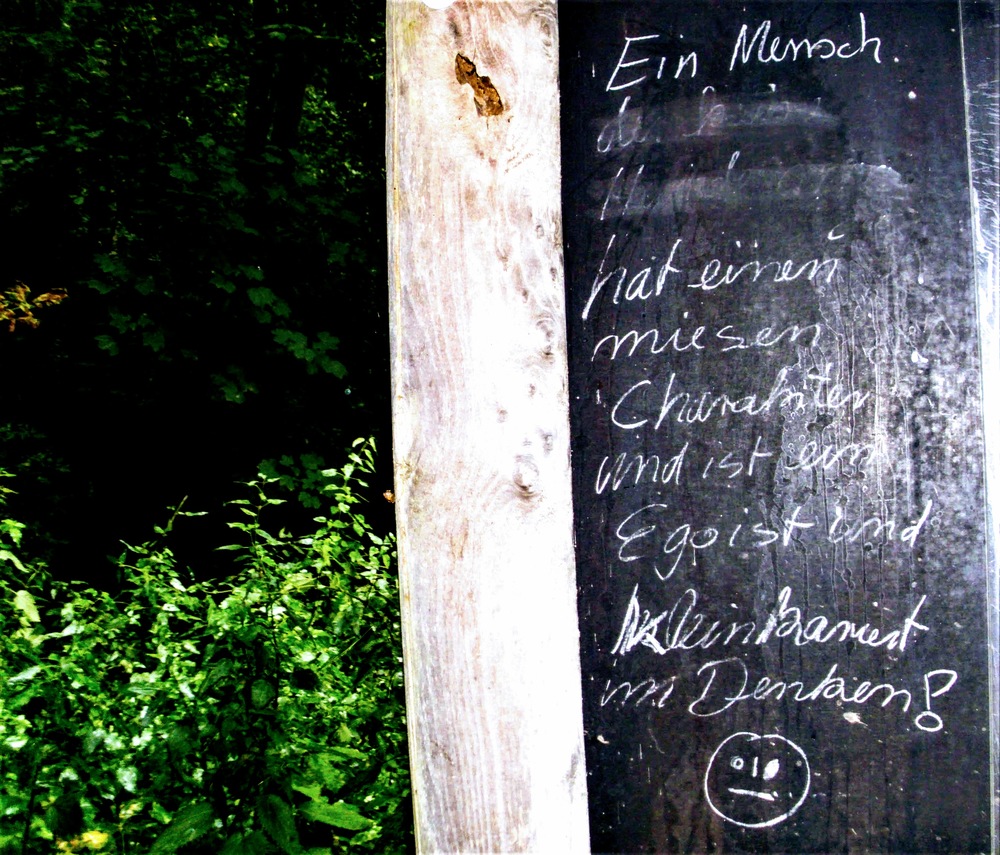 Ein Mensch.
hat einen
miesen
Charakter
und ist ein
Egoist und
Kleinkariert
im Denken!